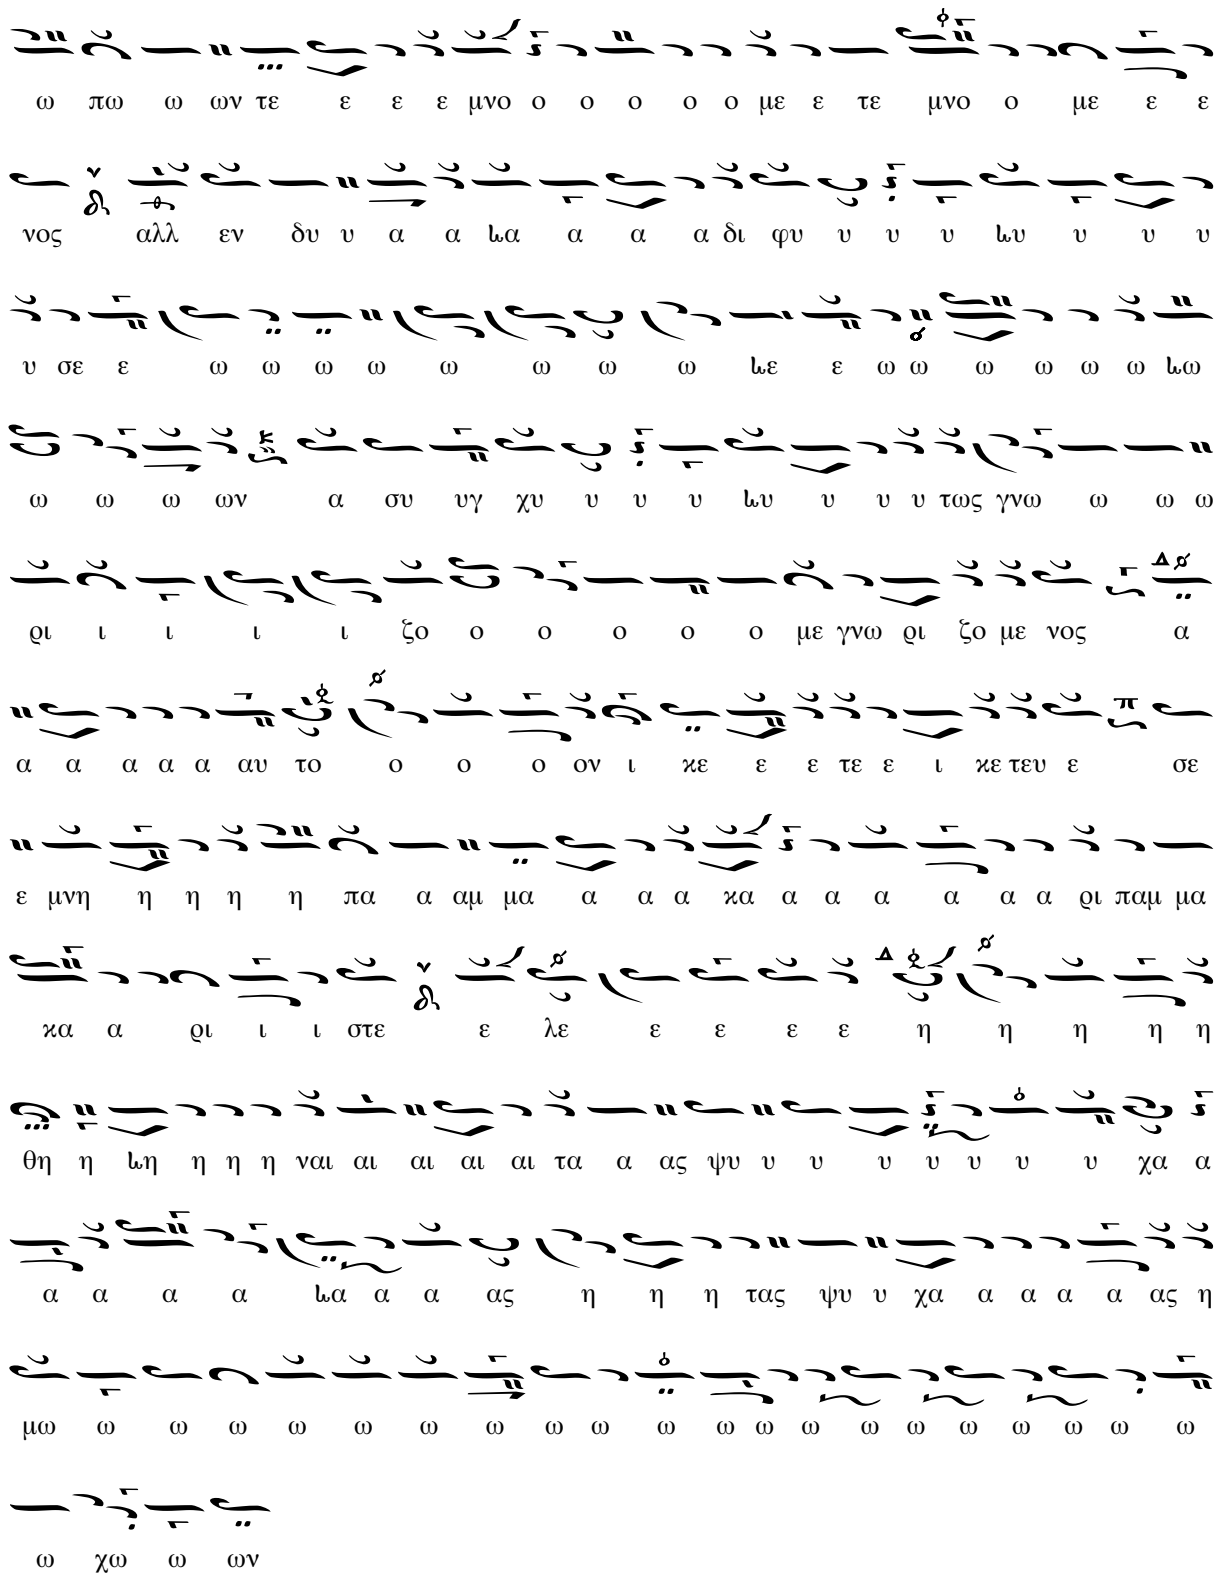 ω πω ω ων τε ε ε ε μνο ο ο ο ο ο με ε τε μνο ο με ε ε
νος αλλ εν δυ υ α α ͷα α α α δι φυ υ υ υ ͷυ υ υ υ
υ σε ε ω ω ω ω ω ω ω ω ͷε ε ω ω ω ω ω ω ͷω
ω ω ω ων α συ υγ χυ υ υ υ ͷυ υ υ υ τως γνω ω ω ω
ρι ι ι ι ι ζο ο ο ο ο ο με γνω ρι ζο με νος α
α α α α α αυ το ο ο ο ον ι κε ε ε τε ε ι κε τευ ε σε
ε μνη η η η η πα α αμ μα α α α κα α α α α α α ρι παμ μα
κα α ρι ι ι στε ε λε ε ε ε ε η η η η η
θη η ͷη η η η ναι αι αι αι αι τα α ας ψυ υ υ υ υ υ υ υ χα α
α α α α ͷα α α ας η η η τας ψυ υ χα α α α α ας η
μω ω ω ω ω ω ω ω ω ω ω ω ω ω ω ω ω ω ω ω
ω χω ω ων